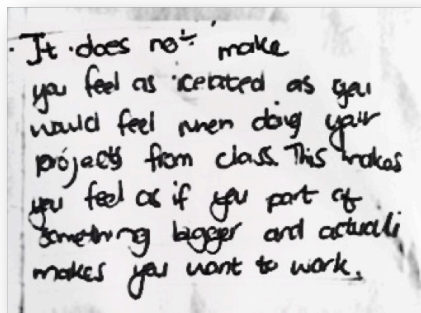 · It does not make
you feel as icelated as you
would feel when doing your
projects from class. This makes
you feel as if you part of
something bigger and actuali
makes you want to work.